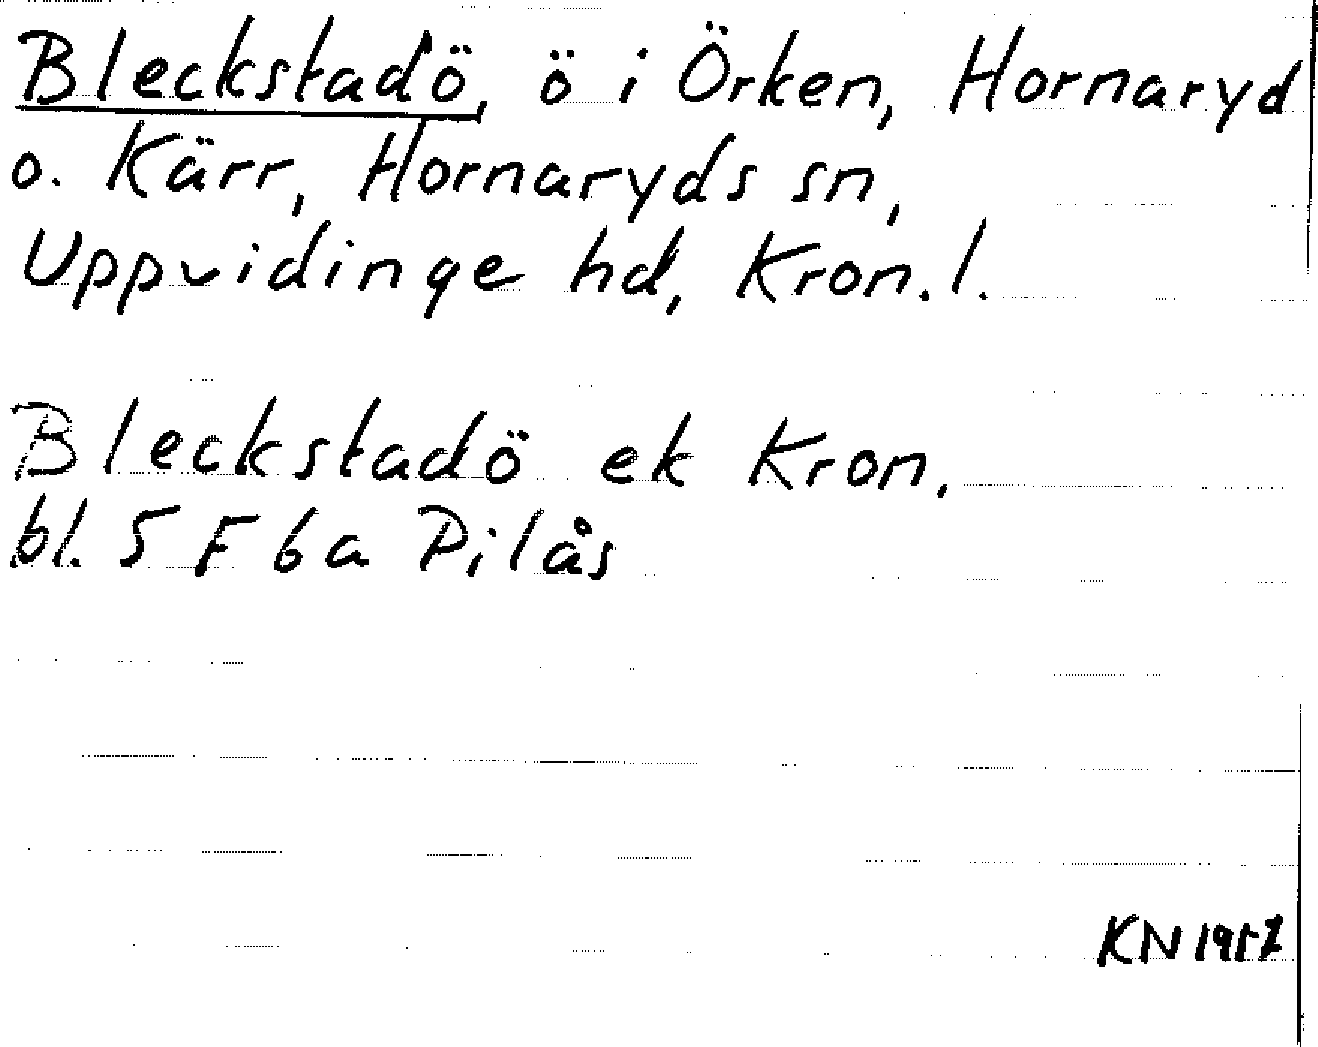 Bleckstadö, ö i Örken, Hornaryd
o. Kärr, Hornaryds sn,
Uppvidinge hd, Kron. l.
Bleckstadö ek Kron.
bl. 5 F 6a Pilås
KN 1957